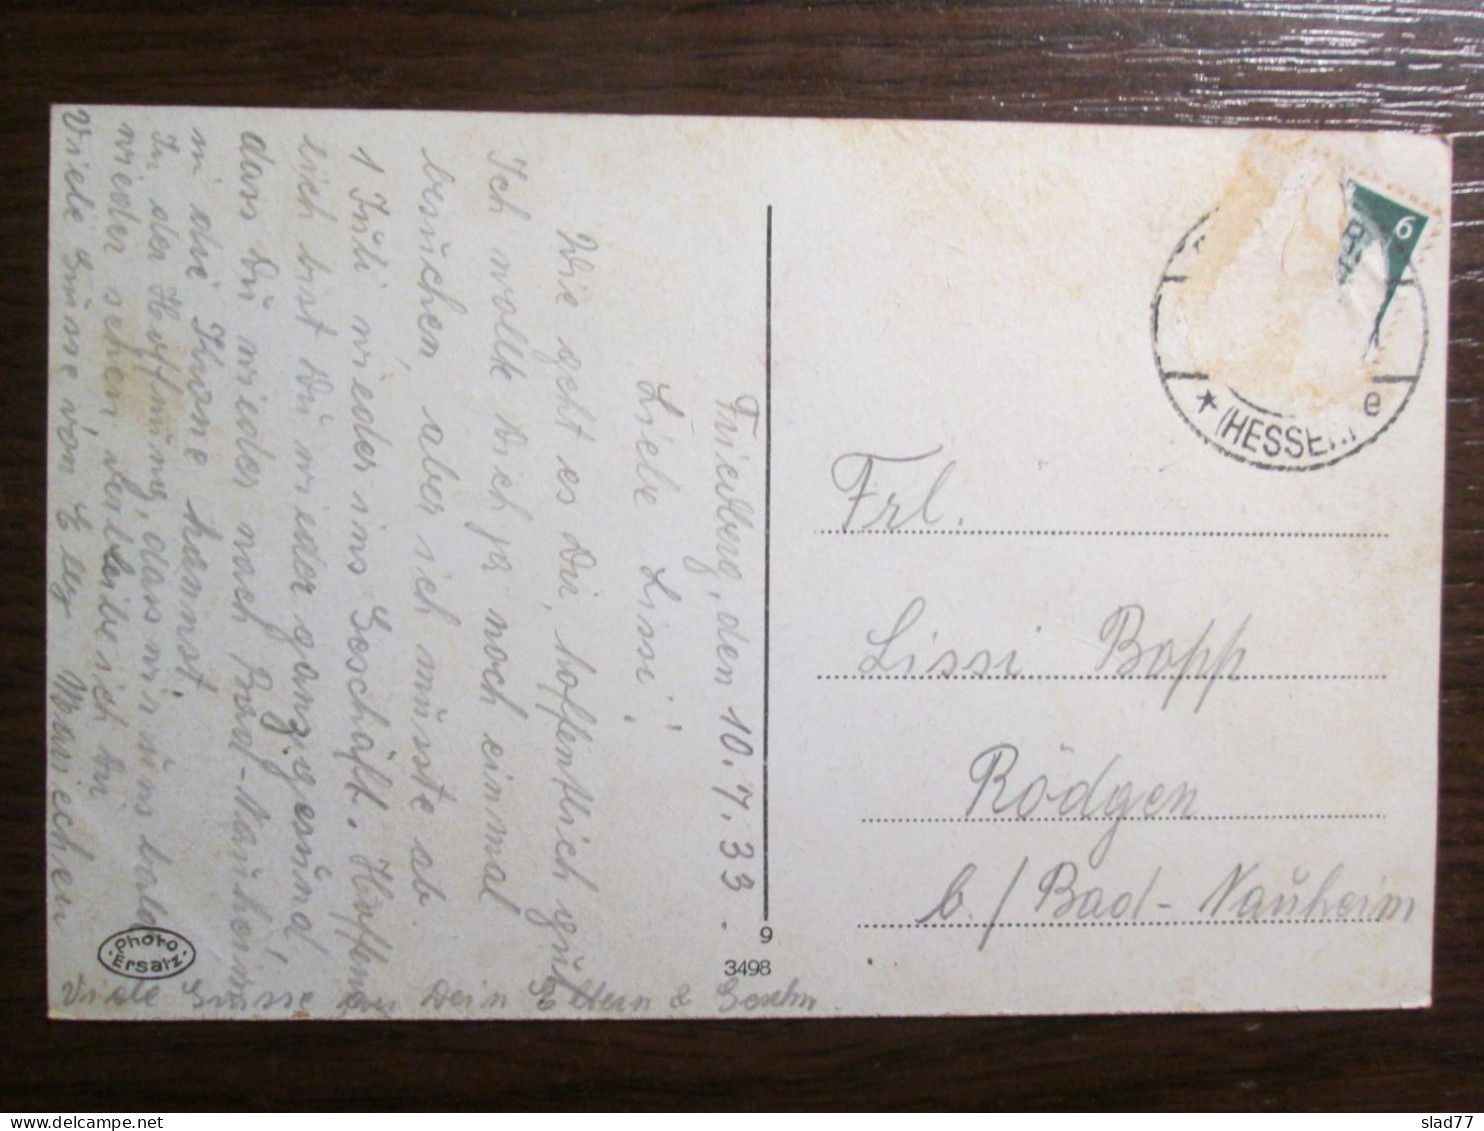 Friedberg, den 10.7.33.
Liebe Lissi!
Wie geht es Dir, hoffentlich gut
Ich wollte Dich ja noch einmal
besuchen, aber ich müsste ab
1 Juli wieder ins Geschäft. Hoffent
lich bist Du wieder ganz gesund,
dass Du wieder nach Bad-Nauheim
in die Krone kannst.
In der Hoffnung, dass wir uns bald
wieder sehen verbleibe ich Du
Viele Grüsse von Mariechen
Viele Grüsse an Dein Eltern & Geschw.
Photo-
Ersatz
9
3498
6
* (HESSEN) e
Frl.
Lissi Bopp
Rödgen
b./Bad-Nauheim
slad77
delcampe.net